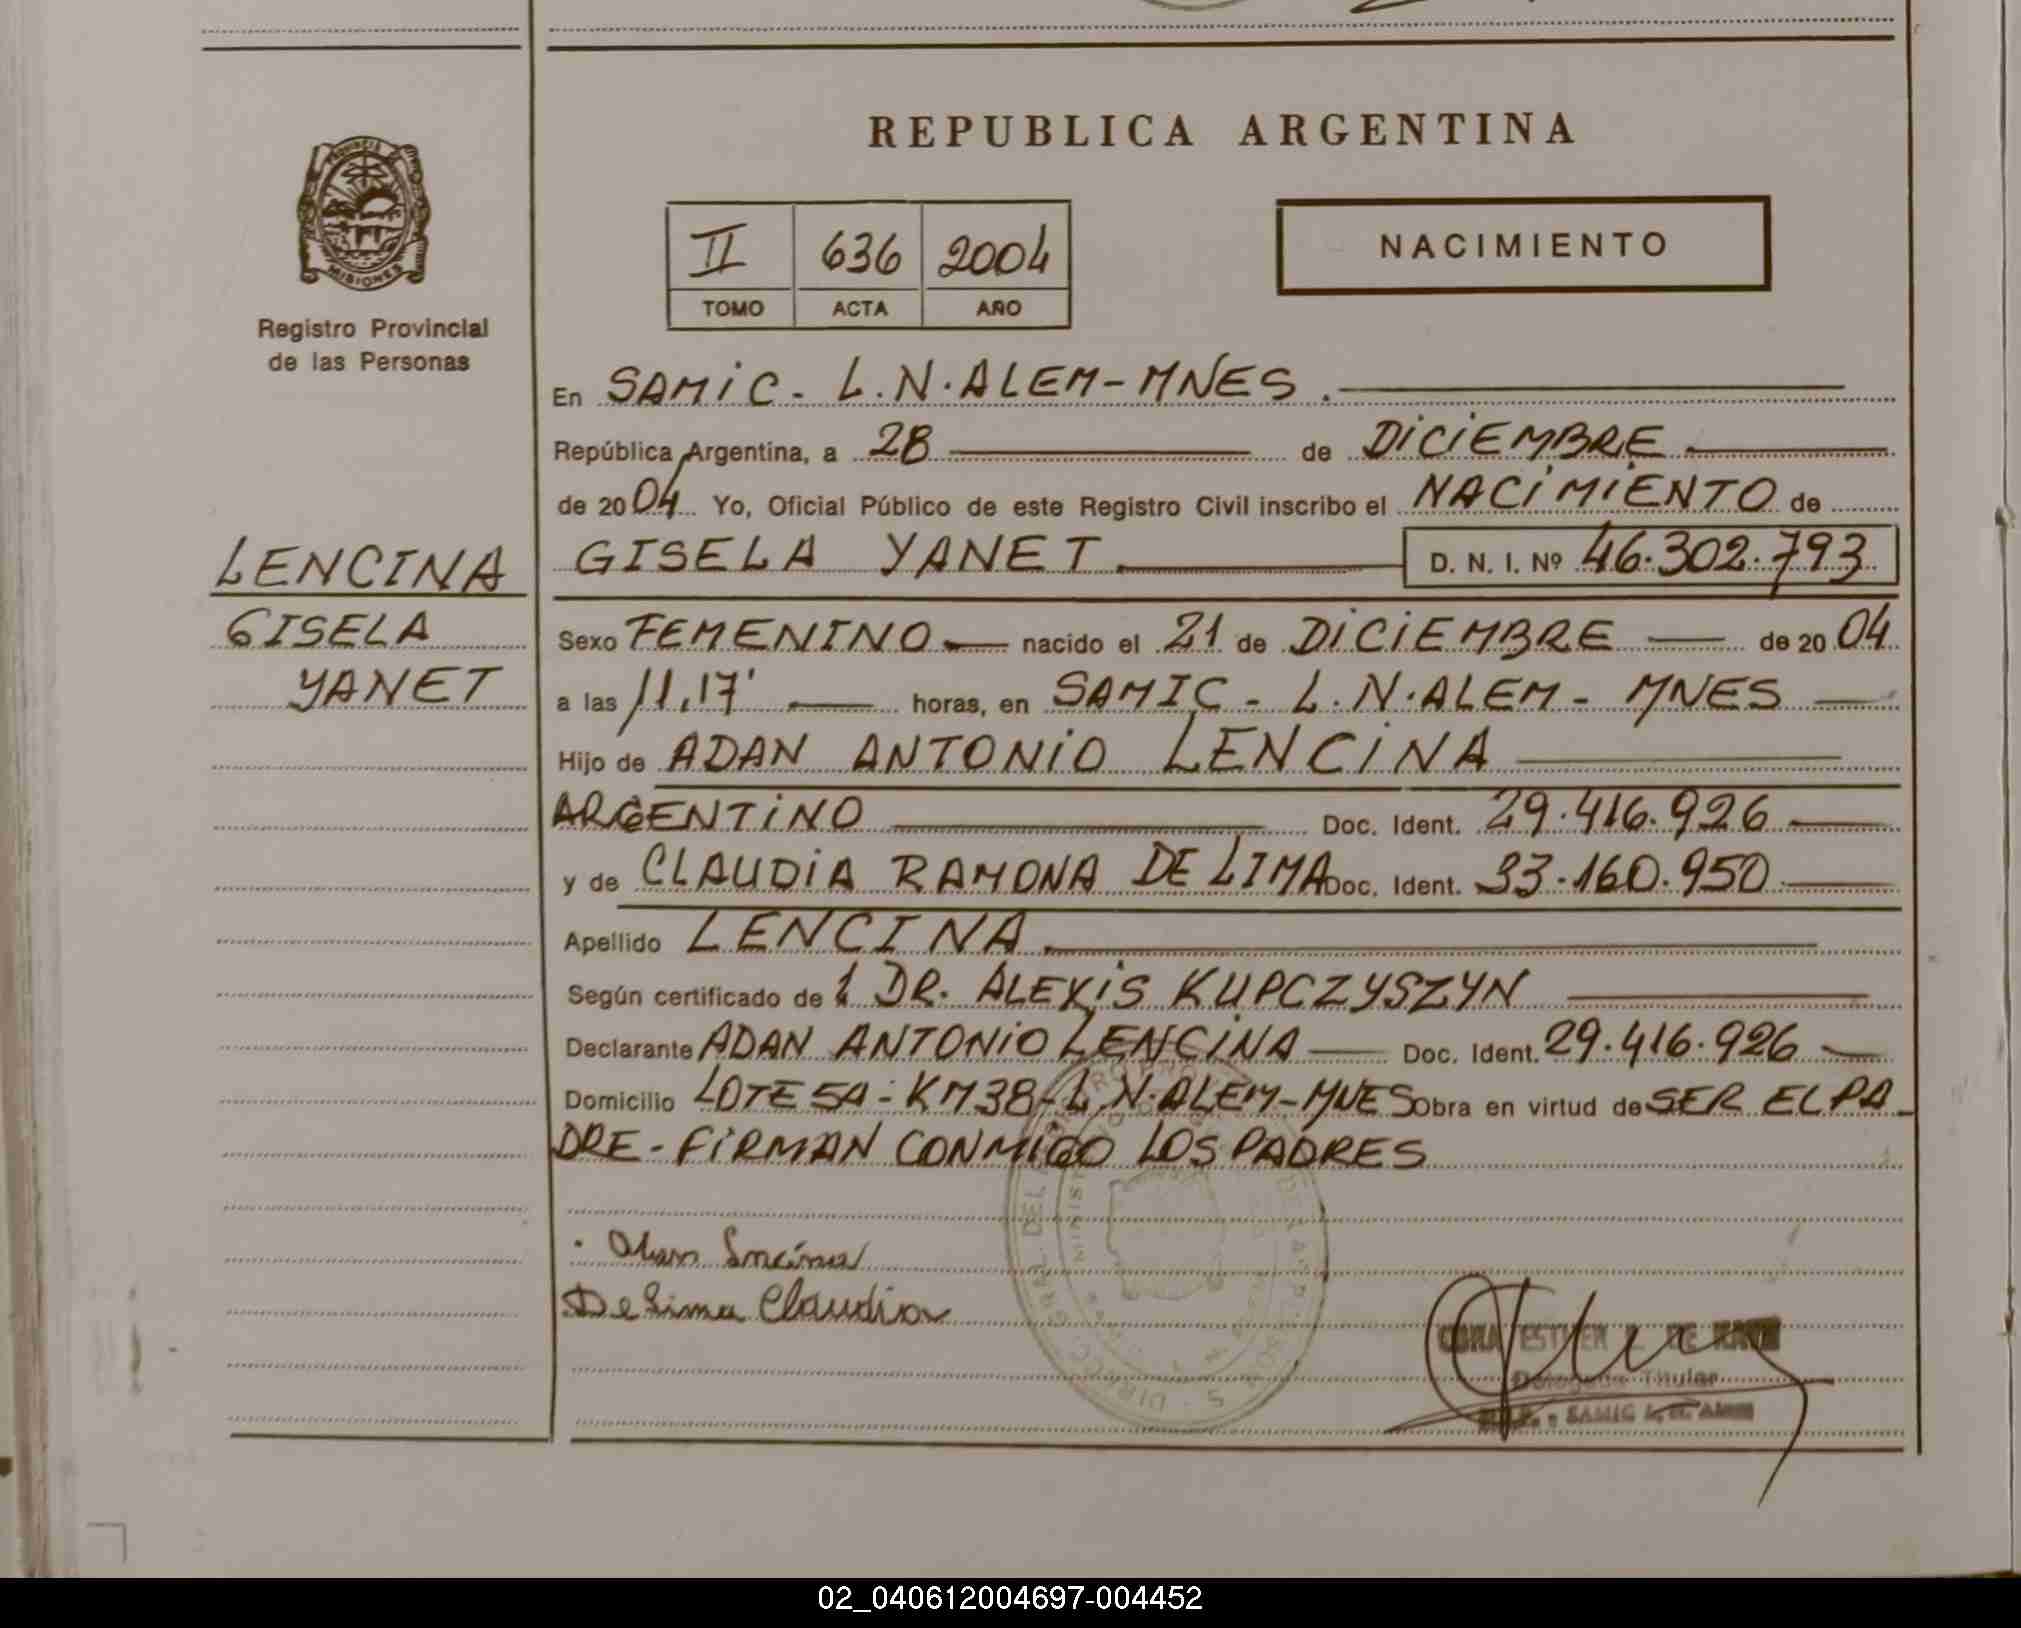 REPUBLICA ARGENTINA
PROVINCIA DE
MISIONES
Registro Provincial
de las Personas
II 636 2004
TOMO ACTA AÑO
NACIMIENTO
En SAMIC - L.N. ALEM - MNES.
República Argentina, a 28 de DICIEMBRE
de 2004 Yo, Oficial Público de este Registro Civil inscribo el NACIMIENTO de
GISELA YANET D. N. I. Nº 46.302.793
LENCINA
GISELA
YANET
Sexo FEMENINO nacido el 21 de DICIEMBRE de 2004
a las 11,17' horas, en SAMIC - L.N. ALEM - MNES
Hijo de ADAN ANTONIO LENCINA
ARGENTINO Doc. Ident. 29.416.926
y de CLAUDIA RAMONA DE LIMA Doc. Ident. 33.160.950
Apellido LENCINA
Según certificado de 1 DR. ALEXIS KUPCZYSZYN
Declarante ADAN ANTONIO LENCINA Doc. Ident. 29.416.926
Domicilio LOTE 5A - KM 38 - L.N. ALEM - MNES Obra en virtud de SER EL PA-
DRE - FIRMAN CONMIGO LOS PADRES
De Lima Claudia
ESTHER DE
Delegada Titular
SAMIC L. N. Alem
02_040612004697-004452